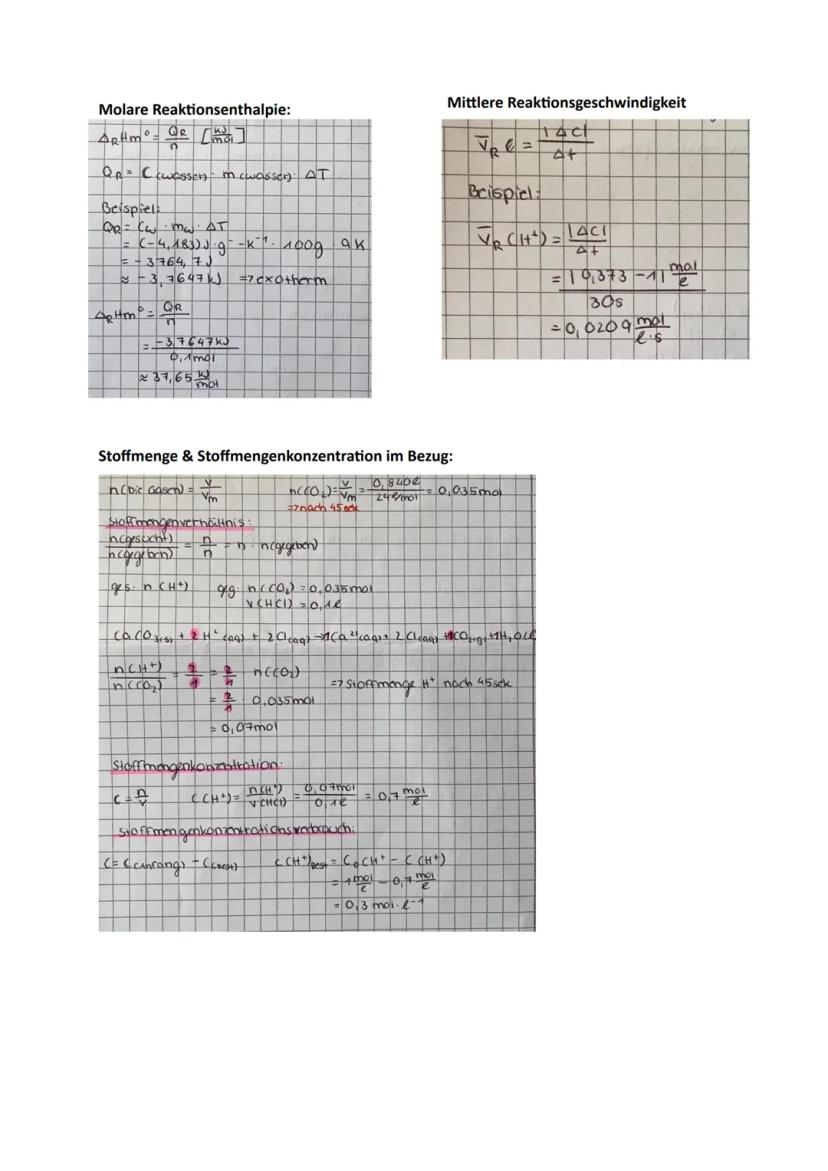 Molare Reaktionsenthalpie:
ΔRHm° = QR/n [kJ/mol]
QR = C (Wasser) · m (Wasser) · ΔT
Beispiel:
QR = Cw · mw · ΔT
= (-4,183) J · g⁻ - K⁻¹ · 100g · 9K
= -3764,7 J
≈ -3,7647 kJ => exotherm
ΔRHm° = QR/n
= -3,7647 kJ / 0,1mol
≈ 37,65 kJ/mol
Mittlere Reaktionsgeschwindigkeit
V̄R = |Δc| / Δt
Beispiel:
V̄R (H⁺) = |Δc| / Δt
= |0,373 - 1| mol/l / 30s
= 0,0209 mol/l·s
Stoffmenge & Stoffmengenkonzentration im Bezug:
n(bei Gasen) = V/Vm n(CO₂) = V/Vm = 0,840l / 24l/mol = 0,035mol
=> nach 45 sek
Stoffmengenverhältnis:
n(gesucht) / n(gegeben) = n/n = n · n(gegeben)
ges: n (H⁺) geg: n (CO₂) = 0,035mol
V (HCl) = 0,1l
CaCO₃(s) + 2 H⁺ (aq) + 2 Cl(aq) → 1Ca²⁺(aq) + 2 Cl(aq) + 1CO₂(g) + 1H₂O(l
n(H⁺) / n(CO₂) = 2/1 = 2/1 · n(CO₂)
= 2/1 · 0,035mol => Stoffmenge H⁺ nach 45sek
= 0,07mol
Stoffmengenkonzentration:
c = n/V c(H⁺) = n(H⁺) / V(HCl) = 0,07mol / 0,1l = 0,7 mol/l
Stoffmengenkonzentrationsverbrauch:
C = C(Anfang) - C(Rest) c(H⁺)Rest = C₀CH⁺ - C(H⁺)
= 1 mol/l - 0,7 mol/l
= 0,3 mol · l⁻¹